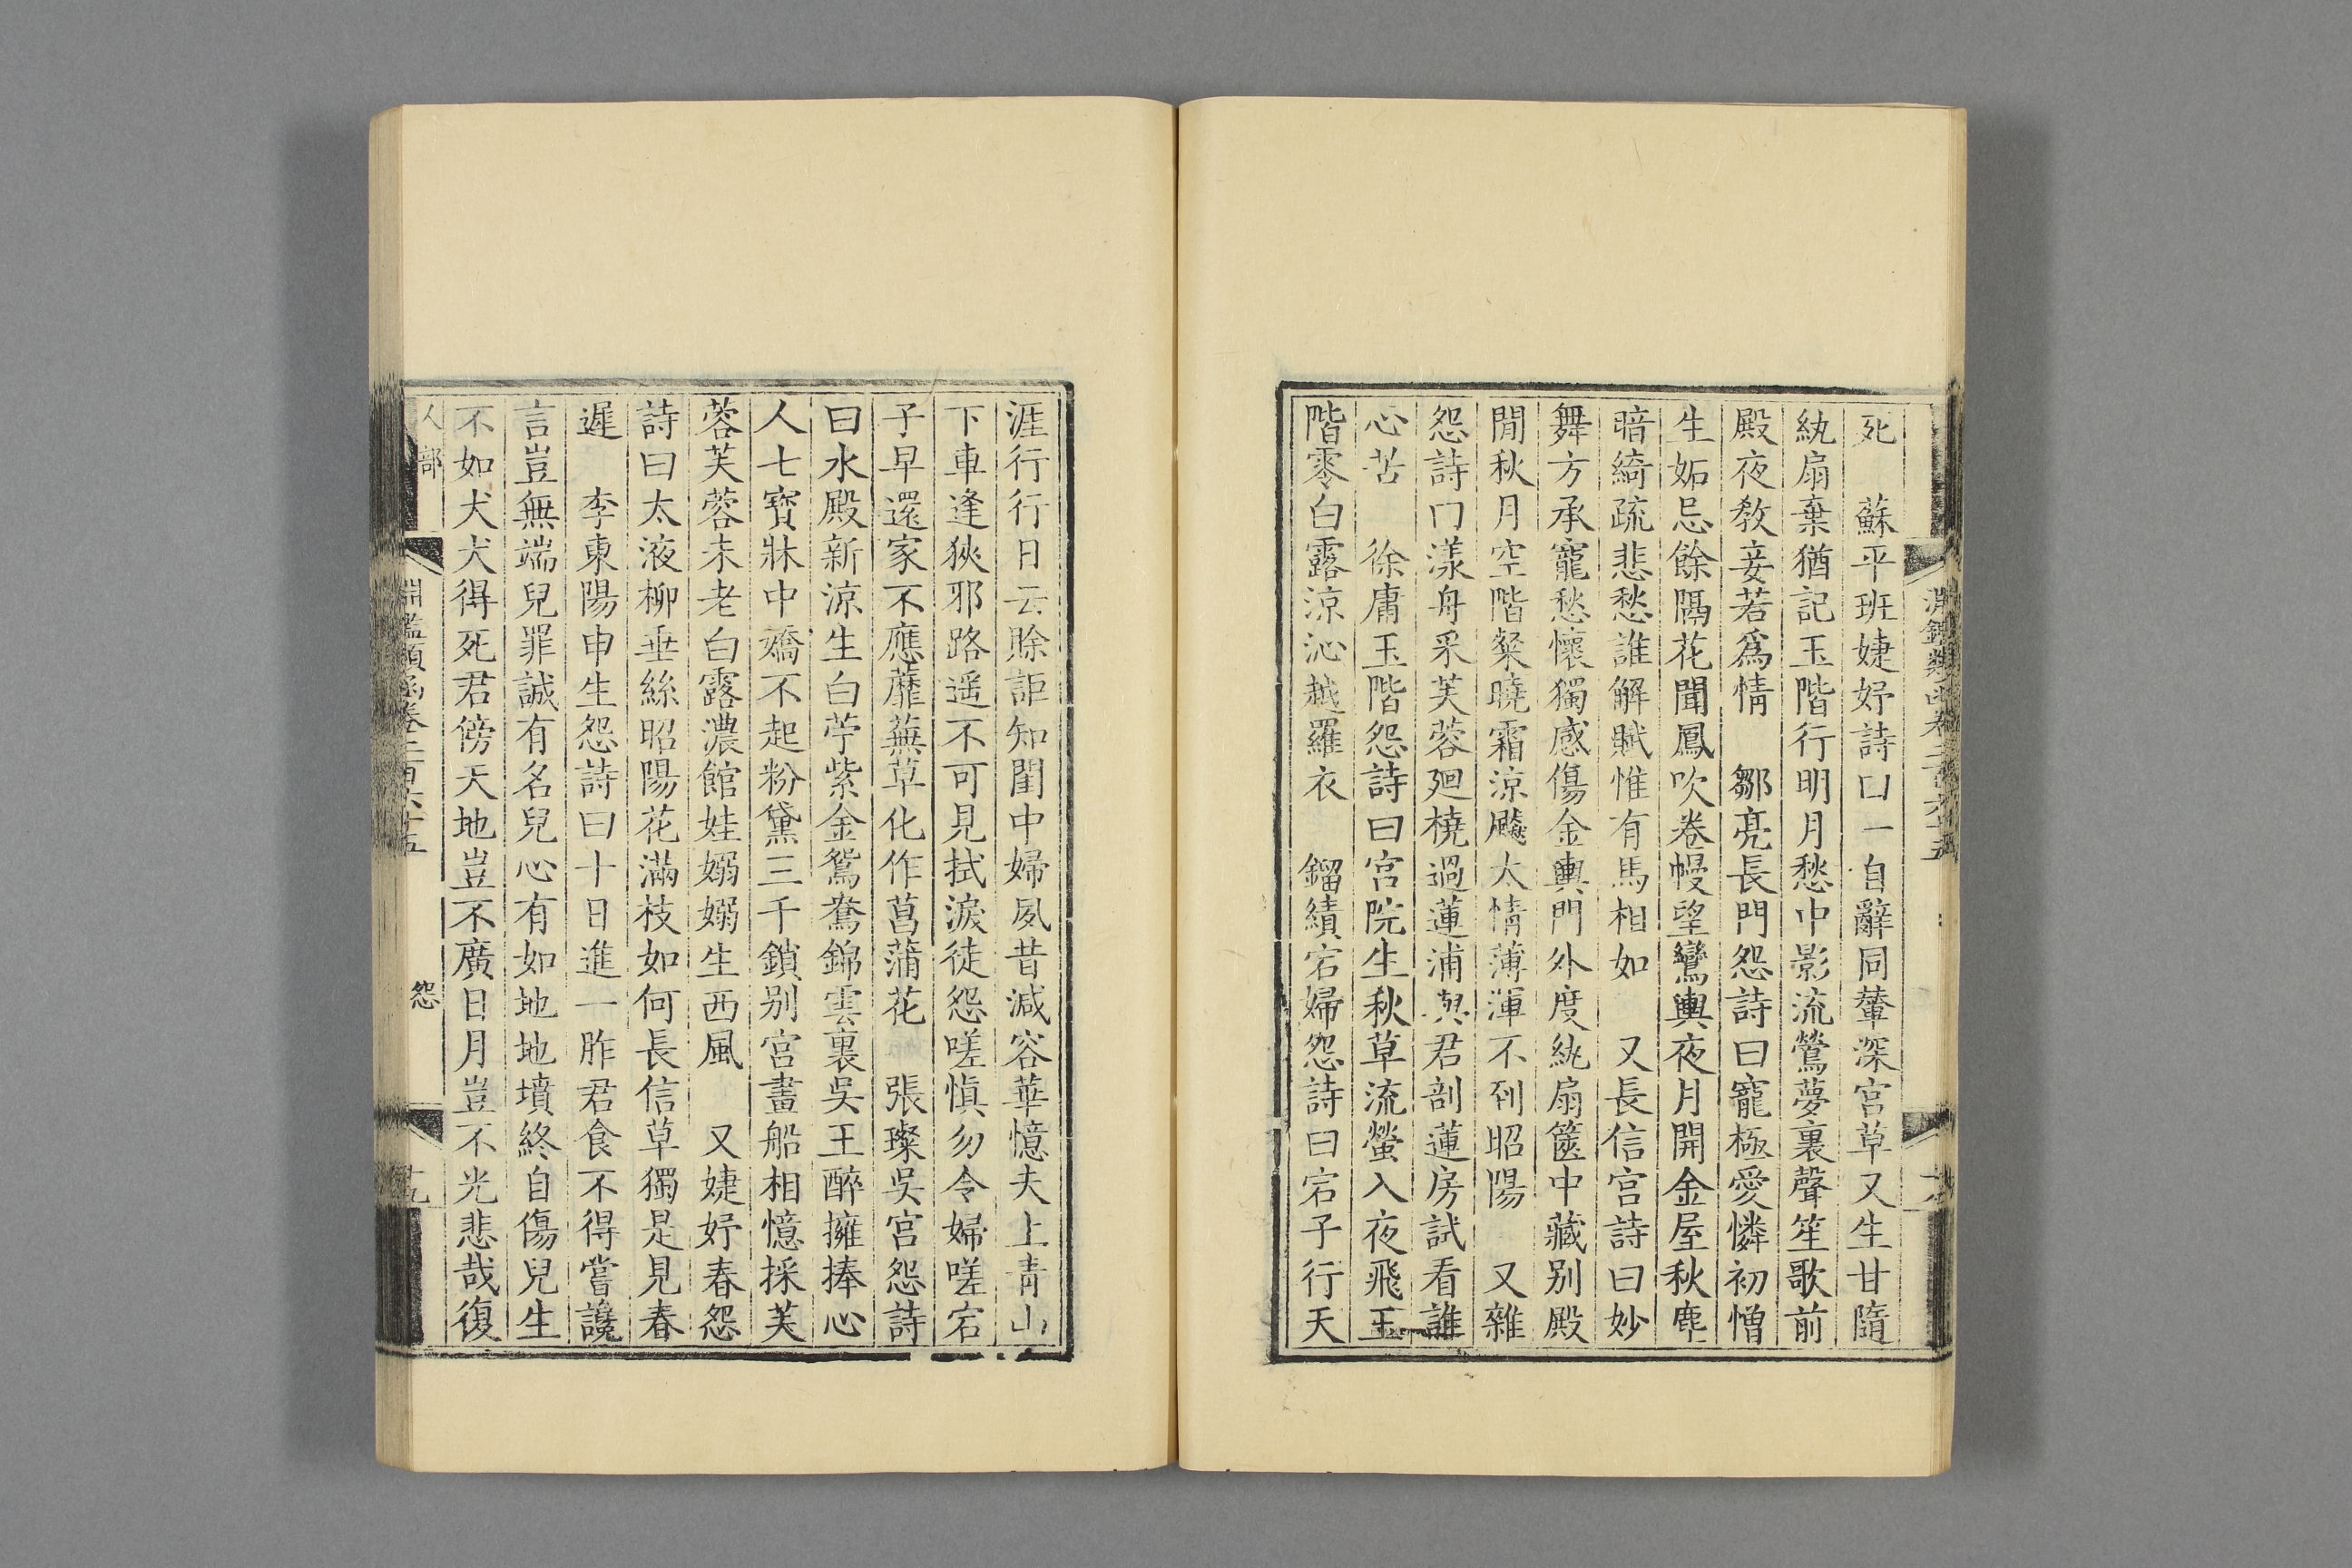 死　蘇平班婕妤詩曰一自辭同輦深宮草又生甘隨
紈扇棄猶記玉階行明月愁中影流鶯夢裏聲笙歌前
殿夜敎妾若爲情　鄒亮長門怨詩曰寵極愛憐初憎
生妬忌餘隔花聞鳳吹卷幔望鸞輿夜月開金屋秋塵
暗綺疏悲愁誰解賦惟有馬相如　又長信宮詩曰妙
舞方承寵愁懷獨感傷金輿門外度紈扇篋中藏別殿
閒秋月空階粲曉霜涼飈太情薄渾不到昭陽　又雜
怨詩曰漾舟采芙蓉廻橈過蓮浦與君剖蓮房試看誰
心苦　徐庸玉階怨詩曰宮院生秋草流螢入夜飛玉
階零白露涼沁越羅衣　鎦績宕婦怨詩曰宕子行天
涯行行日云賒詎知閨中婦夙昔減容華憶夫上青山
下車逢狹邪路遥不可見拭淚徒怨嗟愼勿令婦嗟宕
子早還家不應蘼蕪草化作菖蒲花　張璨吳宮怨詩
曰水殿新涼生白苧紫金鴛鴦錦雲裏吳王醉擁捧心
人七寶牀中嬌不起粉黛三千鎖別宮畫船相憶採芙
蓉芙蓉未老白露濃館娃嫋嫋生西風　又婕妤春怨
詩曰太液柳垂絲昭陽花滿枝如何長信草獨是見春
遲　李東陽申生怨詩曰十日進一胙君食不得嘗讒
言豈無端兒罪誠有名兒心有如地地墳終自傷兒生
不如犬犬得死君傍天地豈不廣日月豈不光悲哉復
人部　淵鑑類函卷三百六十五　怨